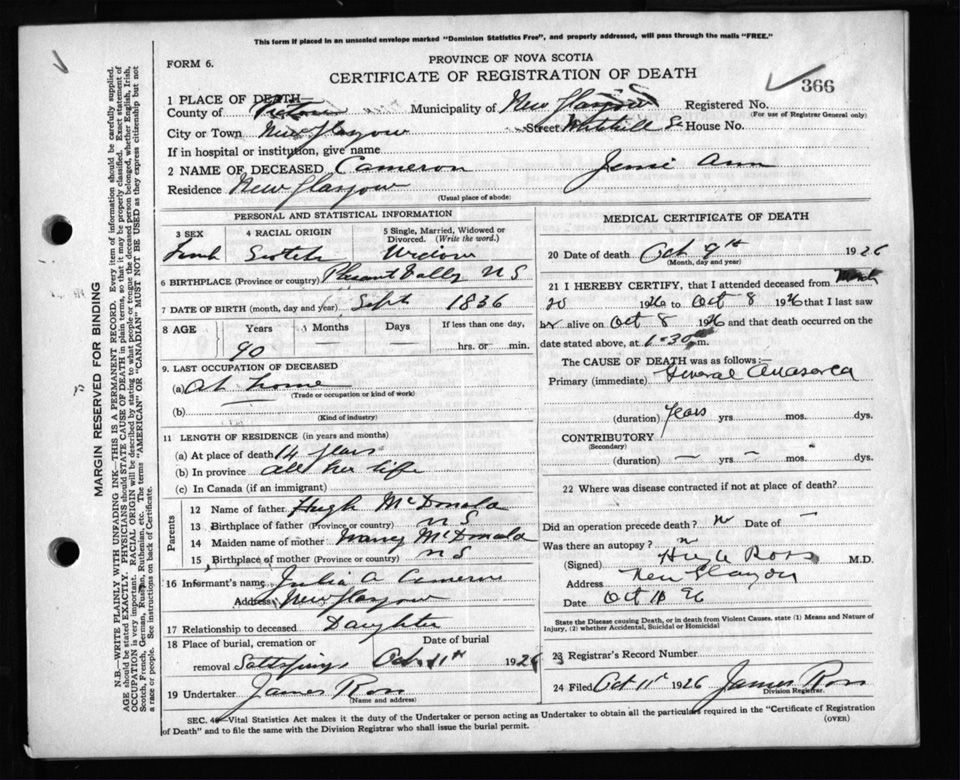 This form if placed in an unsealed envelope marked "Dominion Statistics Free", and properly addressed, will pass through the mails "FREE."
FORM 6.
PROVINCE OF NOVA SCOTIA
CERTIFICATE OF REGISTRATION OF DEATH
366
1 PLACE OF DEATH—
County of Pictou Municipality of New Glasgow Registered No.
(For use of Registrar General only)
City or Town New Glasgow Street House No.
If in hospital or institution, give name
2 NAME OF DECEASED Cameron Jessie Ann
Residence New Glasgow
(Usual place of abode)
PERSONAL AND STATISTICAL INFORMATION
3 SEX 4 RACIAL ORIGIN 5 Single, Married, Widowed or Divorced. (Write the word.)
Scotch Widow
6 BIRTHPLACE (Province or country) N S
7 DATE OF BIRTH (month, day and year) Sept 1836
8 AGE Years Months Days If less than one day,
90 hrs. or min.
9. LAST OCCUPATION OF DECEASED
(a) At home
(Trade or occupation or kind of work)
(b)
(Kind of industry)
11 LENGTH OF RESIDENCE (in years and months)
(a) At place of death 14 years
(b) In province all her life
(c) In Canada (if an immigrant)
Parents
12 Name of father Hugh McDonald
13 Birthplace of father (Province or country) N S
14 Maiden name of mother Nancy McDonald
15 Birthplace of mother (Province or country) N S
16 Informant's name Julia A Cameron
Address New Glasgow
17 Relationship to deceased Daughter
18 Place of burial, cremation or removal Date of burial
Saltsprings Oct 11th 1926
19 Undertaker James Ross
(Name and address)
MEDICAL CERTIFICATE OF DEATH
20 Date of death Oct 9th 1926
(Month, day and year)
21 I HEREBY CERTIFY, that I attended deceased from March
20 1926 to Oct 8 1926 that I last saw
her alive on Oct 8 1926 and that death occurred on
date stated above, at 1-30 m.
The CAUSE OF DEATH was as follows:—
Primary (immediate) General Anasarca
(duration) years yrs. mos. dys.
CONTRIBUTORY
(Secondary)
(duration) — yrs — mos. dys.
22 Where was disease contracted if not at place of death?
Did an operation precede death? no Date of —
Was there an autopsy? n
(Signed) Hugh Ross M.D.
Address New Glasgow
Date Oct 10 26
State the Disease causing Death, or in death from Violent Causes, state (1) Means and Nature of Injury, (2) whether Accidental, Suicidal or Homicidal
23 Registrar's Record Number
24 Filed Oct 11th 1926 James Ross
Division Registrar.
SEC. 4—Vital Statistics Act makes it the duty of the Undertaker or person acting as Undertaker to obtain all the particulars required in the "Certificate of Registration
of Death" and to file the same with the Division Registrar who shall issue the burial permit.
(OVER)
MARGIN RESERVED FOR BINDING
N.B.—WRITE PLAINLY WITH UNFADING INK—THIS IS A PERMANENT RECORD. Every item of information should be carefully supplied.
AGE should be stated EXACTLY. PHYSICIANS should STATE CAUSE OF DEATH in plain terms, so that it may be properly classified. Exact statement of
OCCUPATION is very important. RACIAL ORIGIN will be described by stating to what people or tongue the deceased person belonged, whether English, Irish,
Scotch, French, German, Russian, Ruthenian, etc. The terms "AMERICAN" OR "CANADIAN" MUST NOT BE USED as they express citizenship but not
a race or people. See instructions on back of Certificate.